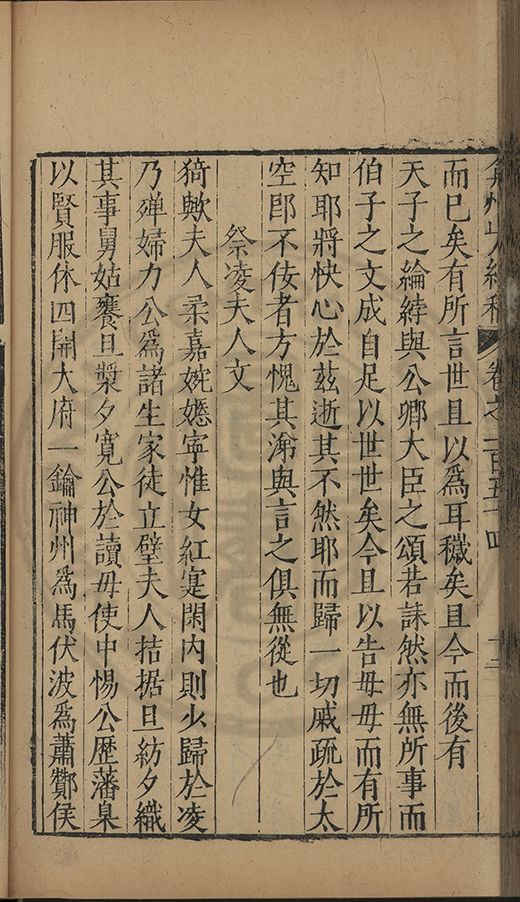 弇州山人續稿 卷之一百五十四 十二
而已矣有所言世且以爲耳穢矣且今而後有
天子之綸綍與公卿大臣之頌若誄然亦無所事而
伯子之文成自足以世世矣今且以告毋毋而有所
知耶將快心於茲逝其不然耶而歸一切戚疏於太
空郎不佞者方愧其淛與言之俱無從也
祭凌夫人文
猗歟夫人柔嘉婉嫕寧惟女紅寔閑内則少歸於凌
乃殫婦力公爲諸生家徒立壁夫人拮据旦紡夕織
其事舅姑饔旦漿夕寬公於讀毋使中惕公歴藩臬
以賢服休四開大府一鑰神州爲馬伏波爲蕭酇侯